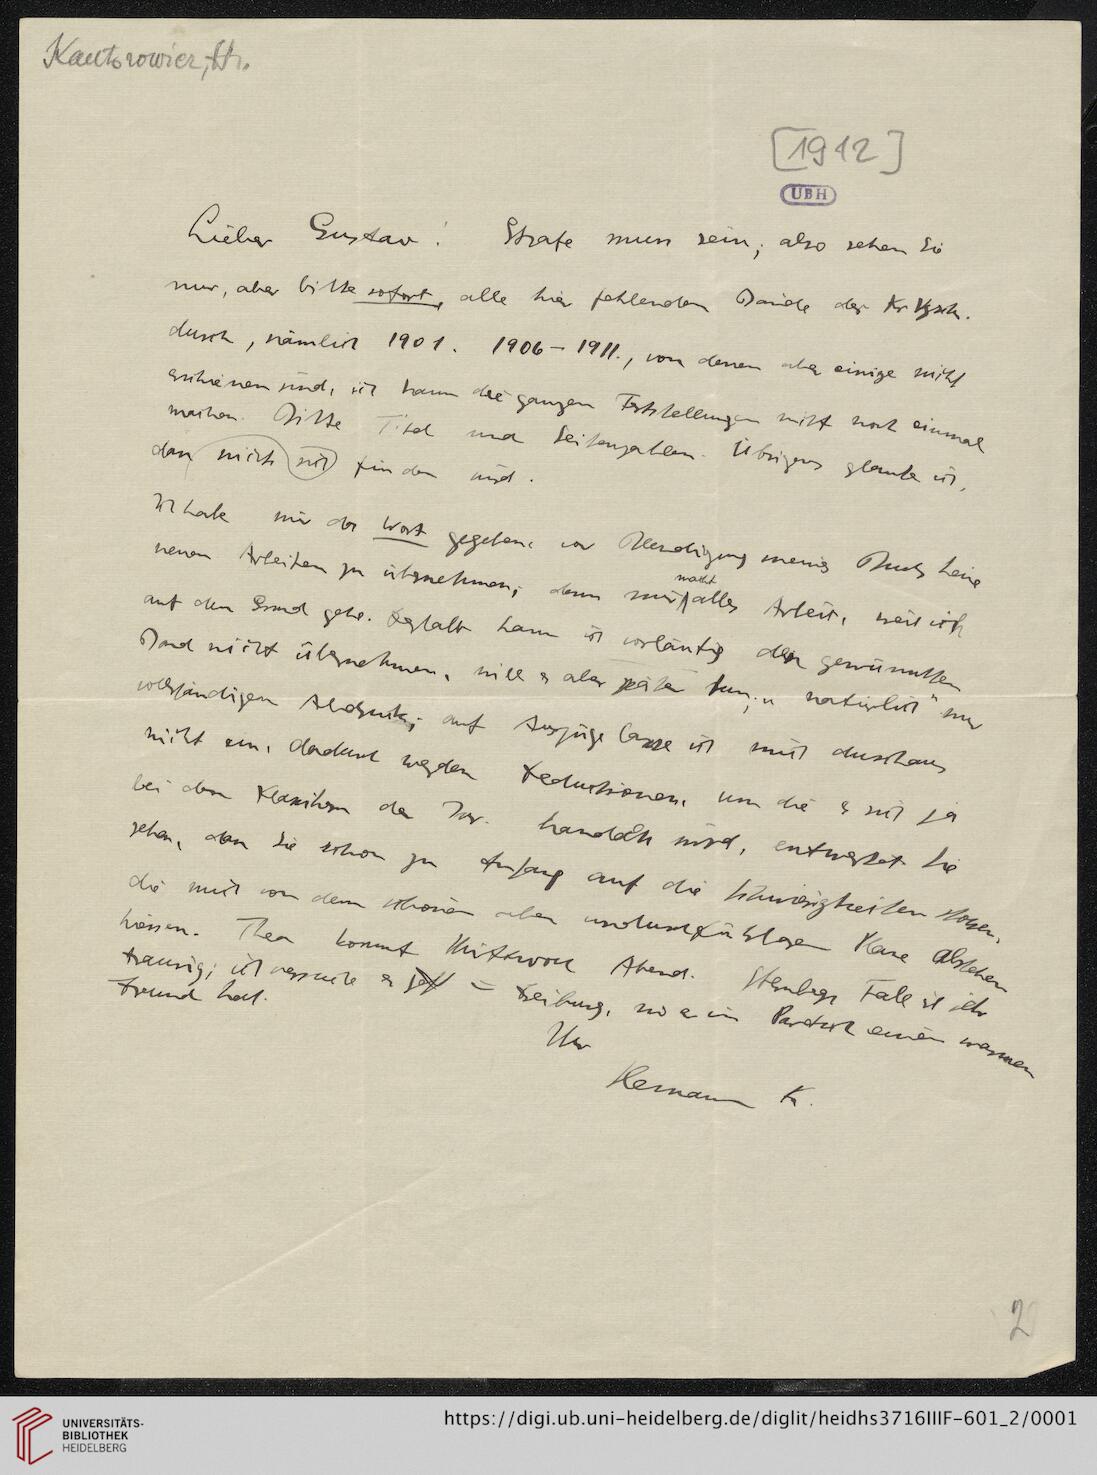 Kantorowicz, H.
[1912]
UBH
Lieber Gustav! Strafe muss sein; also sehen Sie
nur, aber bitte sofort, alle hier fehlenden Bände der Kr Vjsch.
durch, nämlich 1901. 1906–1911., von denen aber einige nicht
erschienen sind, ich kann die ganzen Feststellungen nicht noch einmal
machen. Bitte Titel und Seitenzahlen. Übrigens glaube ich,
dass nichts sich finden wird.
Ich habe mir das Wort gegeben, vor Beendigung meines Buchs keine
neuen Arbeiten zu übernehmen; denn mir macht alles Arbeit, weil ich
auf den Grund gehe. Deshalb kann ich vorläufig den gewünschten
Band nicht übernehmen, will es aber später tun; natürlich nur
vollständigen Abdruck; auf Auszüge lasse ich mich durchaus
nicht ein, dadurch werden Deductionen, um die es sich ja
bei den Klassikern der Jur. handeln wird, entwertet. Sie
sehen, dass Sie schon zu Anfang auf die Schwierigkeiten stossen,
die mich von dem schönen aber undurchführbaren Plane abstehen
hiessen. Thea kommt Mittwoch Abend. Sternbergs Fall ist sehr
traurig; ich versuche es in Freiburg, wo er in einen warmen
Freund hat.
Ihr
Hermann K.
2
UNIVERSITÄTS-
BIBLIOTHEK
HEIDELBERG
https://digi.ub.uni-heidelberg.de/diglit/heidhs3716IIIF-601_2/0001